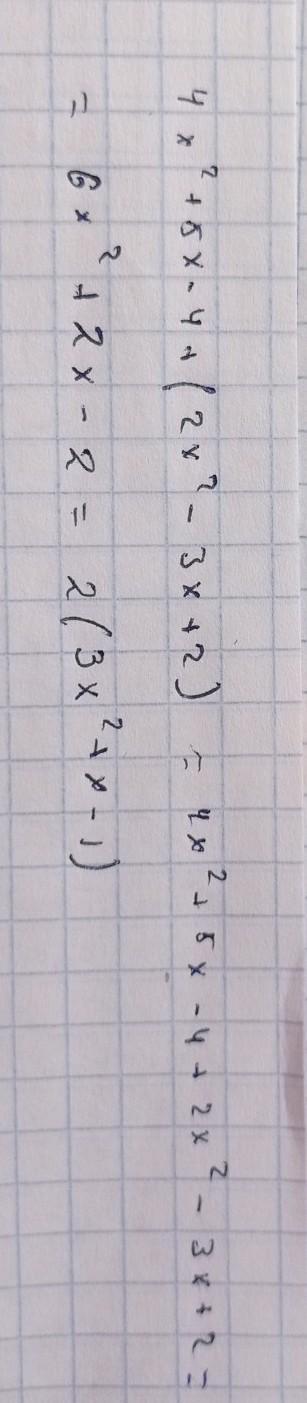 4x² + 5x - 4 + (2x² - 3x + 2) = 4x² + 5x - 4 + 2x² - 3x + 2 =
= 6x² + 2x - 2 = 2(3x² + x - 1)